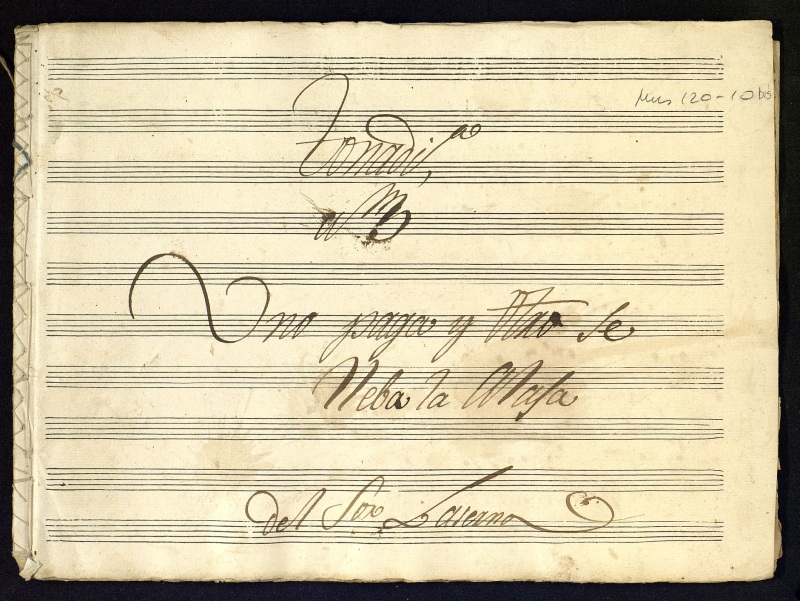 Mus 120-10bis
tonadi,ª
a 3
Uno paga y Otro se
lleba la Maja
del Sor Laserna